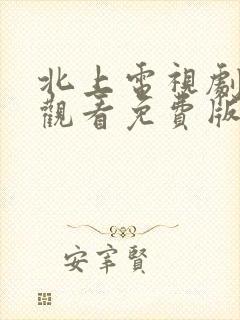 北上電視劇
觀看免費版
安宰賢